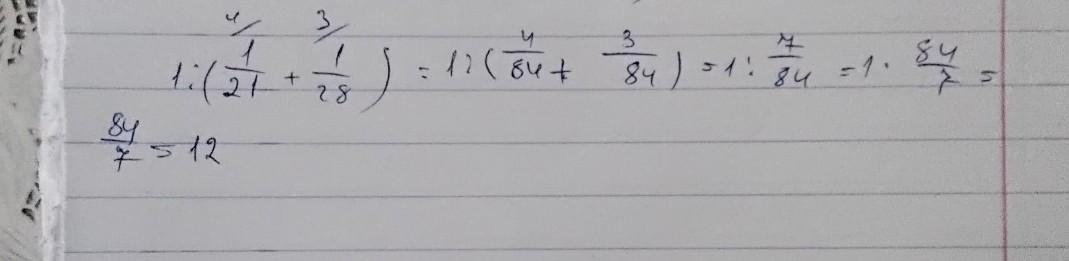 1:(4/ 1/21 + 3/ 1/28) = 1:(4/84 + 3/84) = 1: 7/84 = 1 · 84/7 =
84/7 = 12